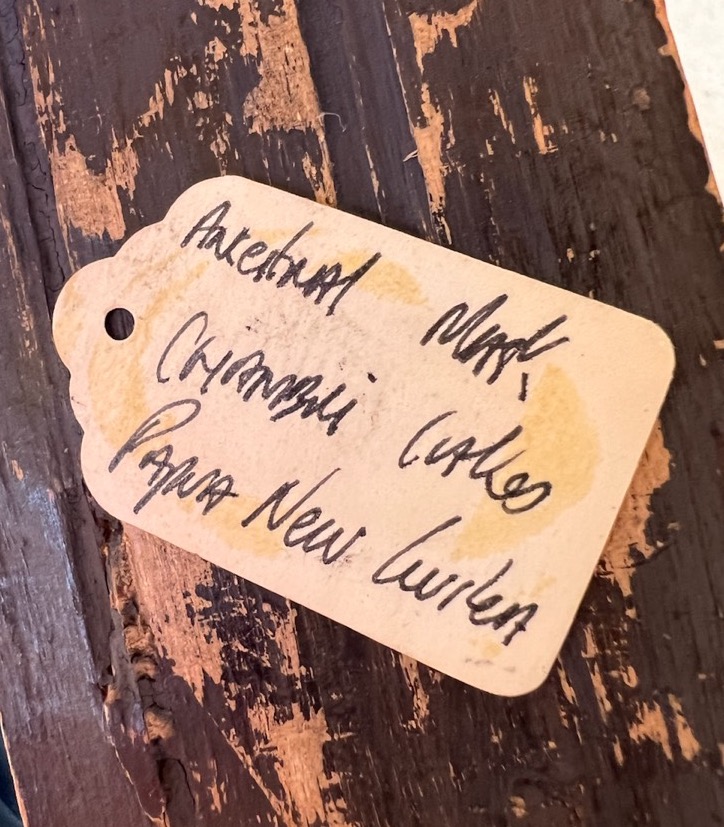 Ancestral Mask,
Chambli Lakes
Papua New Guinea